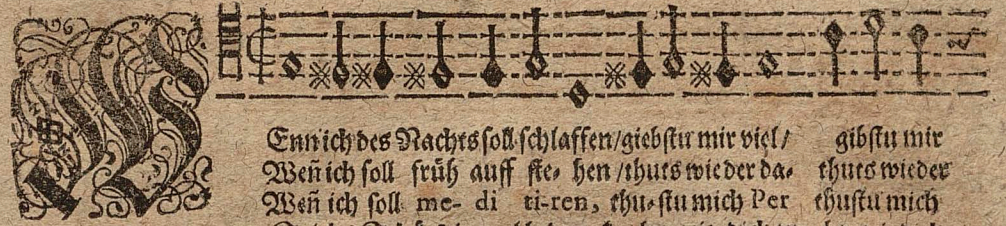 WEnn ich des Nachts soll schlaffen/giebstu mir viel/ gibstu mir
Weñ ich soll früh auff ste- hen/thuts wieder da- thuts wieder
Weñ ich soll me- di ti-ren, thu-stu mich Per thustu mich